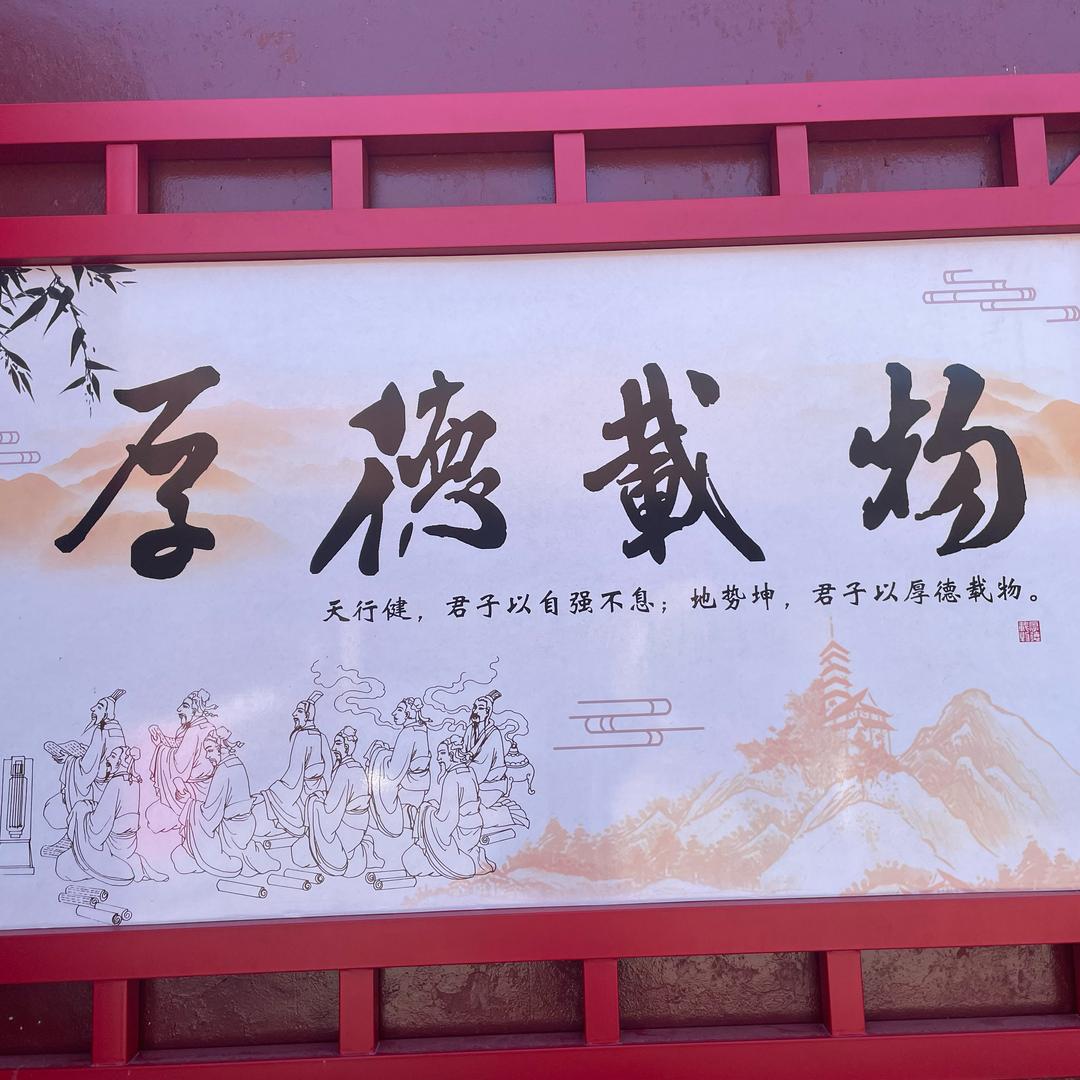 厚德載物
天行健，君子以自强不息；地势坤，君子以厚德载物。